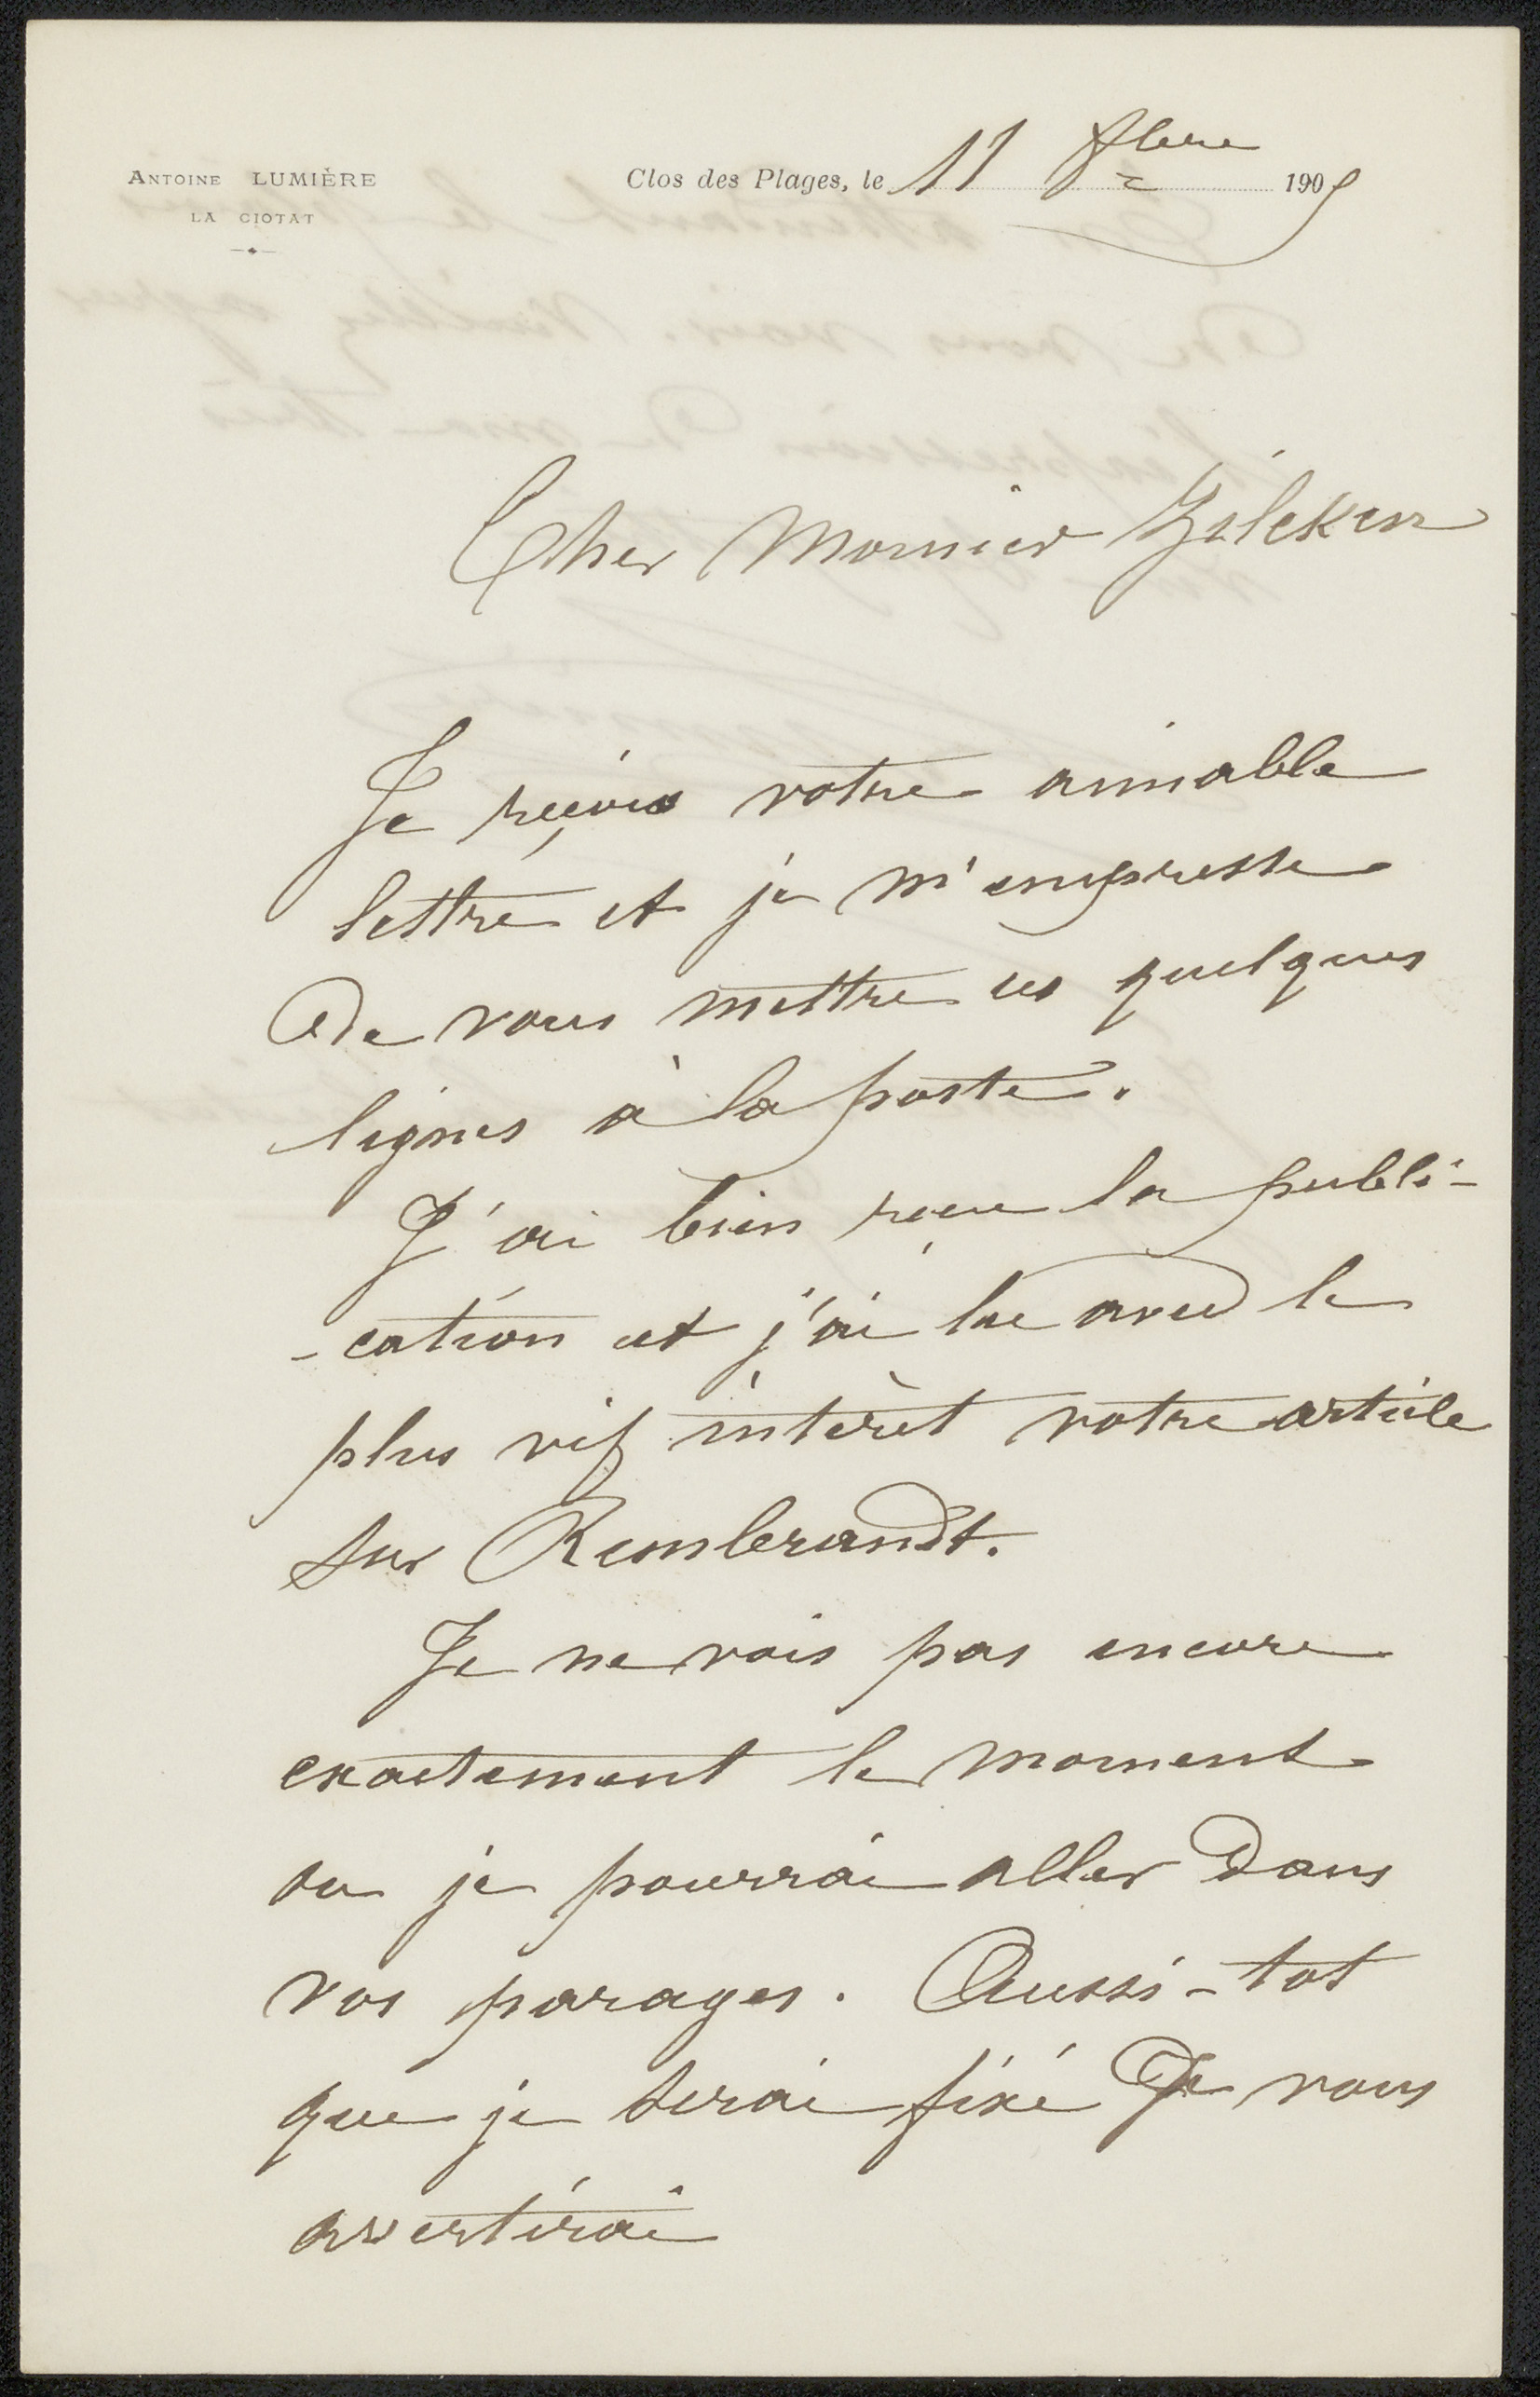 ANTOINE LUMIÈRE
LA CIOTAT
Clos des Plages, le 11 8bre 1905
Cher Monsieur Zilcken
Je reçois votre aimable
lettre et je m'empresse
de vous mettre ces quelques
lignes à la poste.
J'ai bien reçu la publi-
-cation et j'ai lu avec le
plus vif intérêt votre article
sur Rembrandt.
Je ne vois pas encore
exactement le moment
ou je pourrai aller dans
vos parages. Aussi-tot
que je serai fixé je vous
avertirai